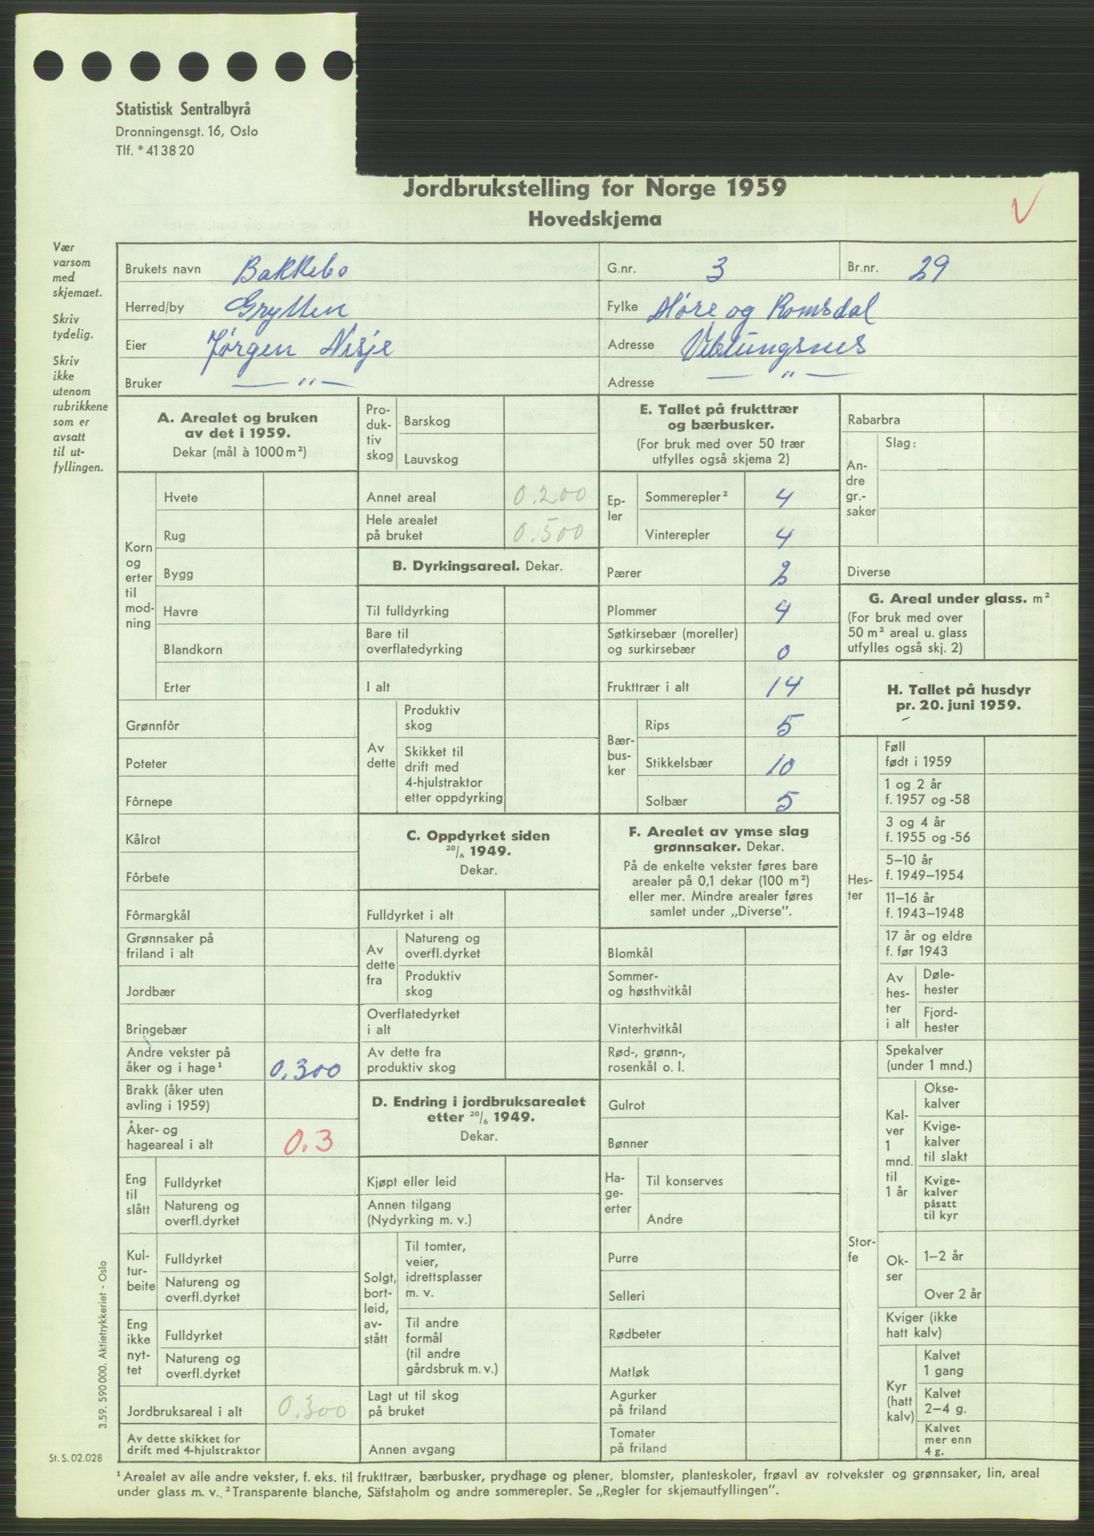 Statistisk Sentralbyrå
Dronningensgt. 16, Oslo
Tlf. * 41 38 20
Jordbrukstelling for Norge 1959
Hovedskjema
V
Vær
varsom
med
skjemaet.
Skriv
tydelig.
Skriv
ikke
utenom
rubrikkene
som er
avsatt
til ut-
fyllingen.
Brukets navn Bakkebo G.nr. 3 Br.nr. 29
Herred/by Grytten Fylke Møre og Romsdal
Eier Jørgen Nesje Adresse Veblungsnes
Bruker — " — Adresse — " —
A. Arealet og bruken
av det i 1959.
Dekar (mål à 1000 m²)
Korn
og
erter
til
mod-
ning
Hvete
Rug
Bygg
Havre
Blandkorn
Erter
Grønnfôr
Poteter
Fôrnepe
Kålrot
Fôrbete
Fôrmargkål
Grønnsaker på
friland i alt
Jordbær
Bringebær
Andre vekster på
åker og i hage¹ 0.300
Brakk (åker uten
avling i 1959)
Åker- og
hageareal i alt 0.3
Eng
til
slått
Fulldyrket
Natureng og
overfl.dyrket
Kul-
tur-
beite
Fulldyrket
Natureng og
overfl.dyrket
Eng
ikke
nyt-
tet
Fulldyrket
Natureng og
overfl.dyrket
Jordbruksareal i alt 0.300
Av dette skikket for
drift med 4-hjulstraktor
Pro-
duk-
tiv
skog
Barskog
Lauvskog
Annet areal 0.200
Hele arealet
på bruket 0.500
B. Dyrkingsareal. Dekar.
Til fulldyrking
Bare til
overflatedyrking
I alt
Av
dette
Produktiv
skog
Skikket til
drift med
4-hjulstraktor
etter oppdyrking
C. Oppdyrket siden
20/6 1949.
Dekar.
Fulldyrket i alt
Av
dette
fra
Natureng og
overfl.dyrket
Produktiv
skog
Overflatedyrket
i alt
Av dette fra
produktiv skog
D. Endring i jordbruksarealet
etter 20/6 1949.
Dekar.
Kjøpt eller leid
Annen tilgang
(Nydyrking m. v.)
Solgt,
bort-
leid,
av-
stått
Til tomter,
veier,
idrettsplasser
m. v.
Til andre
formål
(til andre
gårdsbruk m. v.)
Lagt ut til skog
på bruket
Annen avgang
E. Tallet på frukttrær
og bærbusker.
(For bruk med over 50 trær
utfylles også skjema 2)
Ep-
ler
Sommerepler² 4
Vinterepler 4
Pærer 2
Plommer 4
Søtkirsebær (moreller)
og surkirsebær 0
Frukttrær i alt 14
Bær-
bus-
ker
Rips 5
Stikkelsbær 10
Solbær 5
F. Arealet av ymse slag
grønnsaker. Dekar.
På de enkelte vekster føres bare
arealer på 0,1 dekar (100 m²)
eller mer. Mindre arealer føres
samlet under „Diverse".
Blomkål
Sommer-
og høsthvitkål
Vinterhvitkål
Rød-, grønn-,
rosenkål o. l.
Gulrot
Bønner
Ha-
ge-
erter
Til konserves
Andre
Purre
Selleri
Rødbeter
Matløk
Agurker
på friland
Tomater
på friland
Rabarbra
An-
dre
gr.-
saker
Slag:
Diverse
G. Areal under glass. m²
(For bruk med over
50 m² areal u. glass
utfylles også skj. 2)
H. Tallet på husdyr
pr. 20. juni 1959.
Hes-
ter
Føll
født i 1959
1 og 2 år
f. 1957 og -58
3 og 4 år
f. 1955 og -56
5–10 år
f. 1949–1954
11–16 år
f. 1943–1948
17 år og eldre
f. før 1943
Av
hes-
ter
i alt
Døle-
hester
Fjord-
hester
Stor-
fe
Spekalver
(under 1 mnd.)
Kal-
ver
1
mnd.
til
1 år
Okse-
kalver
Kvige-
kalver
til slakt
Kvige-
kalver
påsatt
til kyr
Ok-
ser
1–2 år
Over 2 år
Kviger (ikke
hatt kalv)
Kyr
(hatt
kalv)
Kalvet
1 gang
Kalvet
2–4 g.
Kalvet
mer enn
4 g.
3.59. 590 000. Aktietrykkeriet - Oslo
St. S. 02.028
¹ Arealet av alle andre vekster, f. eks. til frukttrær, bærbusker, prydhage og plener, blomster, planteskoler, frøavl av rotvekster og grønnsaker, lin, areal
under glass m. v. ² Transparente blanche, Säfstaholm og andre sommerepler. Se „Regler for skjemautfyllingen".